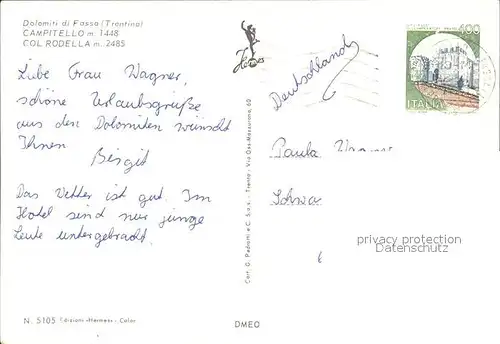 Dolomiti di Fassa (Trentino)
CAMPITELLO m. 1448
COL RODELLA m. 2485
Liebe Frau Wagner,
schöne Urlaubsgrüße
aus den Dolomiten wünscht
Ihnen
Birgit
Das Wetter ist gut. Im
Hotel sind nur junge
Leute untergebracht.
N. 5105 Edizioni «Hermes» - Color
Cart. G. Pedrotti e C. S.a.s. - Trento - Via Gas-Mezzurana, 60
DMEO
Deutschland
400
ITALIA
Paula Wagner
Schwa
privacy protection
Datenschutz